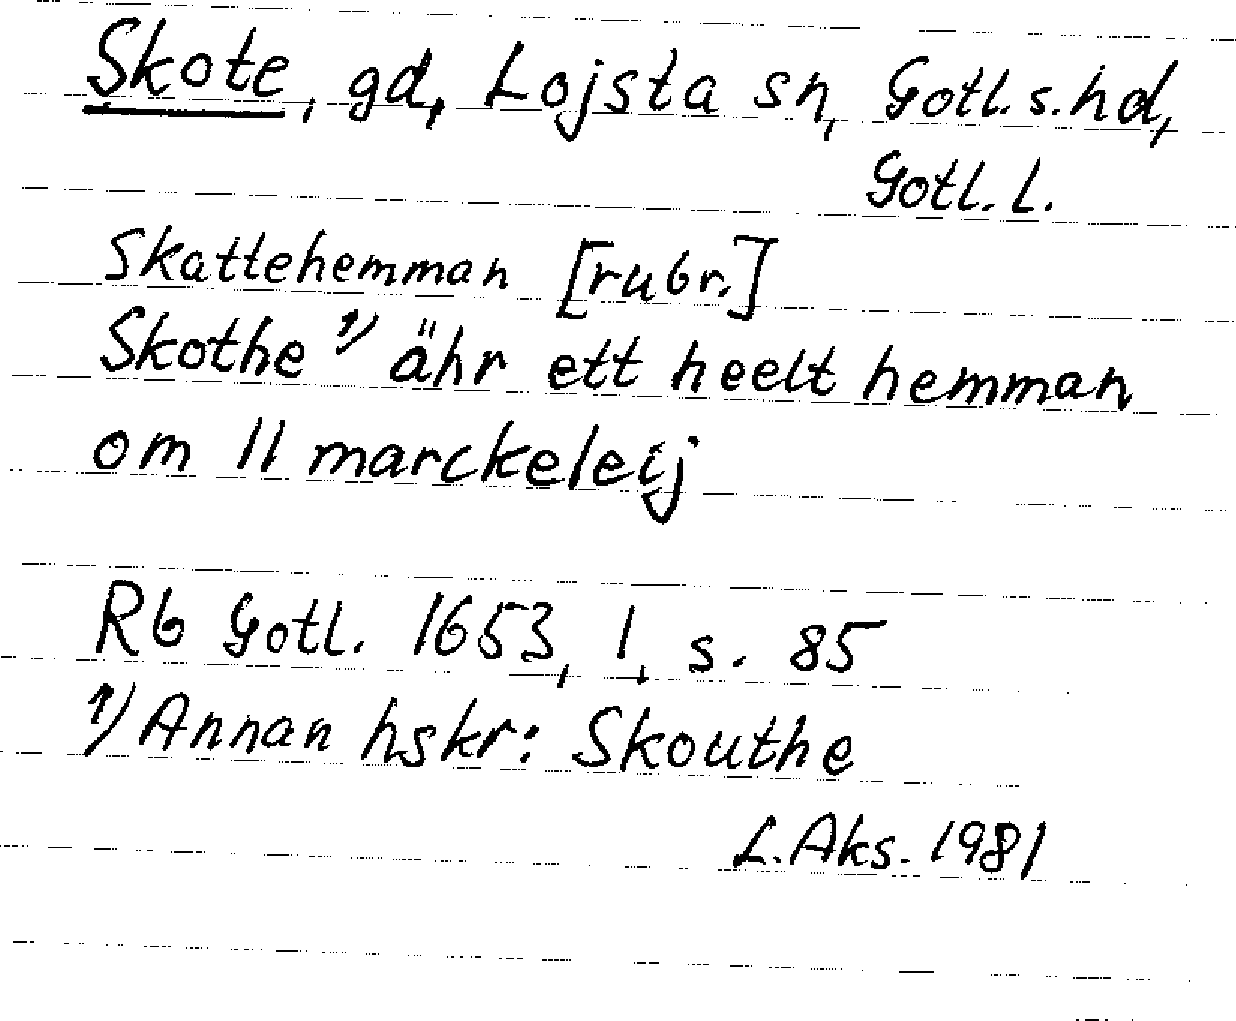 Skote, gd, Lojsta sn, Gotl. s. hd,
Gotl. l.
Skattehemman [rubr.]
Skothe 1) ähr ett heelt hemman
om 11 marckeleij
Rb Gotl. 1653, 1, s. 85
1) Annan hskr: Skouthe
L. Aks. 1981